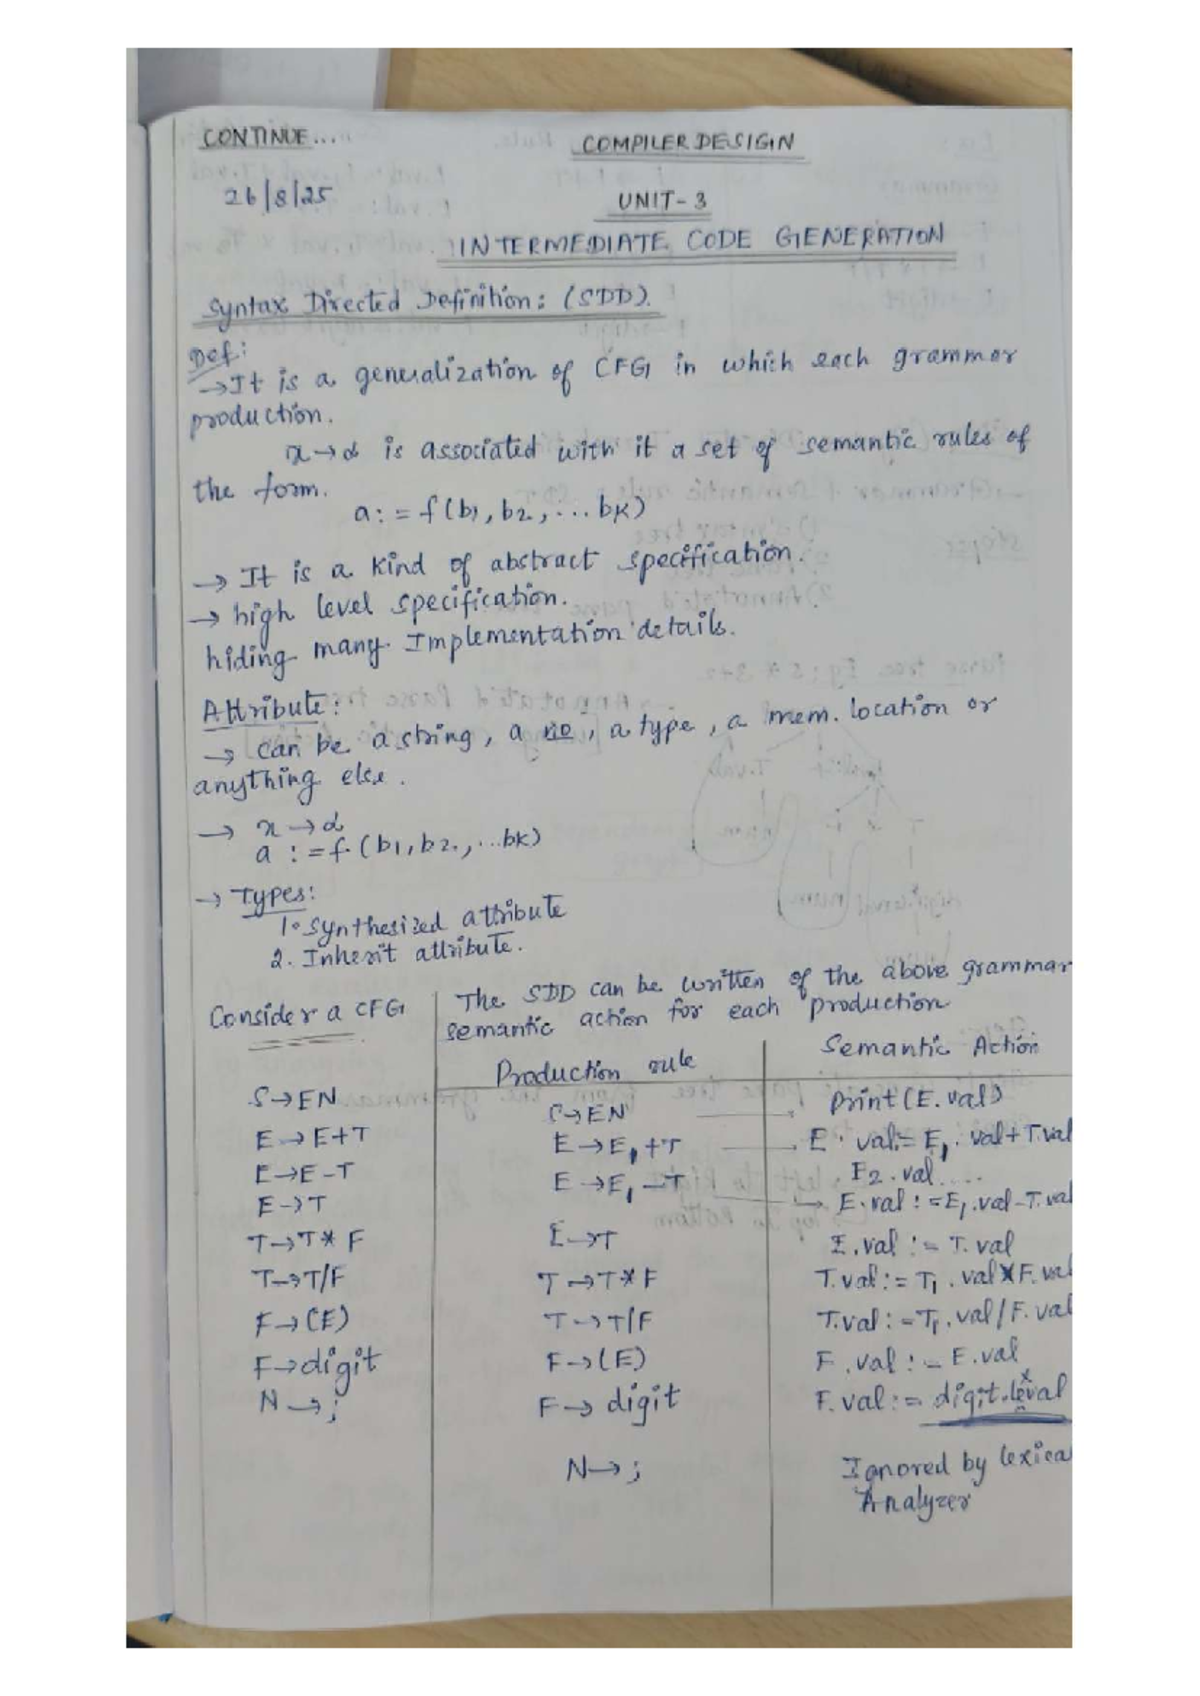 CONTINUE....
COMPILER DESIGN
26/8/25
UNIT-3
INTERMEDIATE CODE GENERATION
Syntax Directed Definition: (SDD).
Def:
→It is a generalization of CFG in which each grammar
production.
x→α is associated with it a set of semantic rules of
the form.
a:=f(b1,b2,...bk)
→ It is a kind of abstract specification.
→ high level specification.
hiding many Implementation details.
Attribute:
→ can be a string, a no, a type, a mem. location or
anything else.
→ x→α
a :=f (b1,b2.,...bk)
→ Types:
1. Synthesized attribute
2. Inherit attribute.
Consider a CFG
The SDD can be written of the above grammar
semantic action for each production
Production rule
Semantic Action
S→EN
E→E+T
E→E-T
E→T
T→T*F
T→T/F
F→(E)
F→digit
N→;
S→EN
E→E1+T
E→E1-T
E→T
T→T*F
T→T/F
F→(E)
F→digit
N→;
Print(E.val)
E.val:=E1.val+T.val
E2.val....
E.val:=E1.val-T.val
E.val:=T.val
T.val:=T1.val*F.val
T.val:=T1.val/F.val
F.val:=E.val
F.val:=digit.lexval
Ignored by lexica
Analyzer